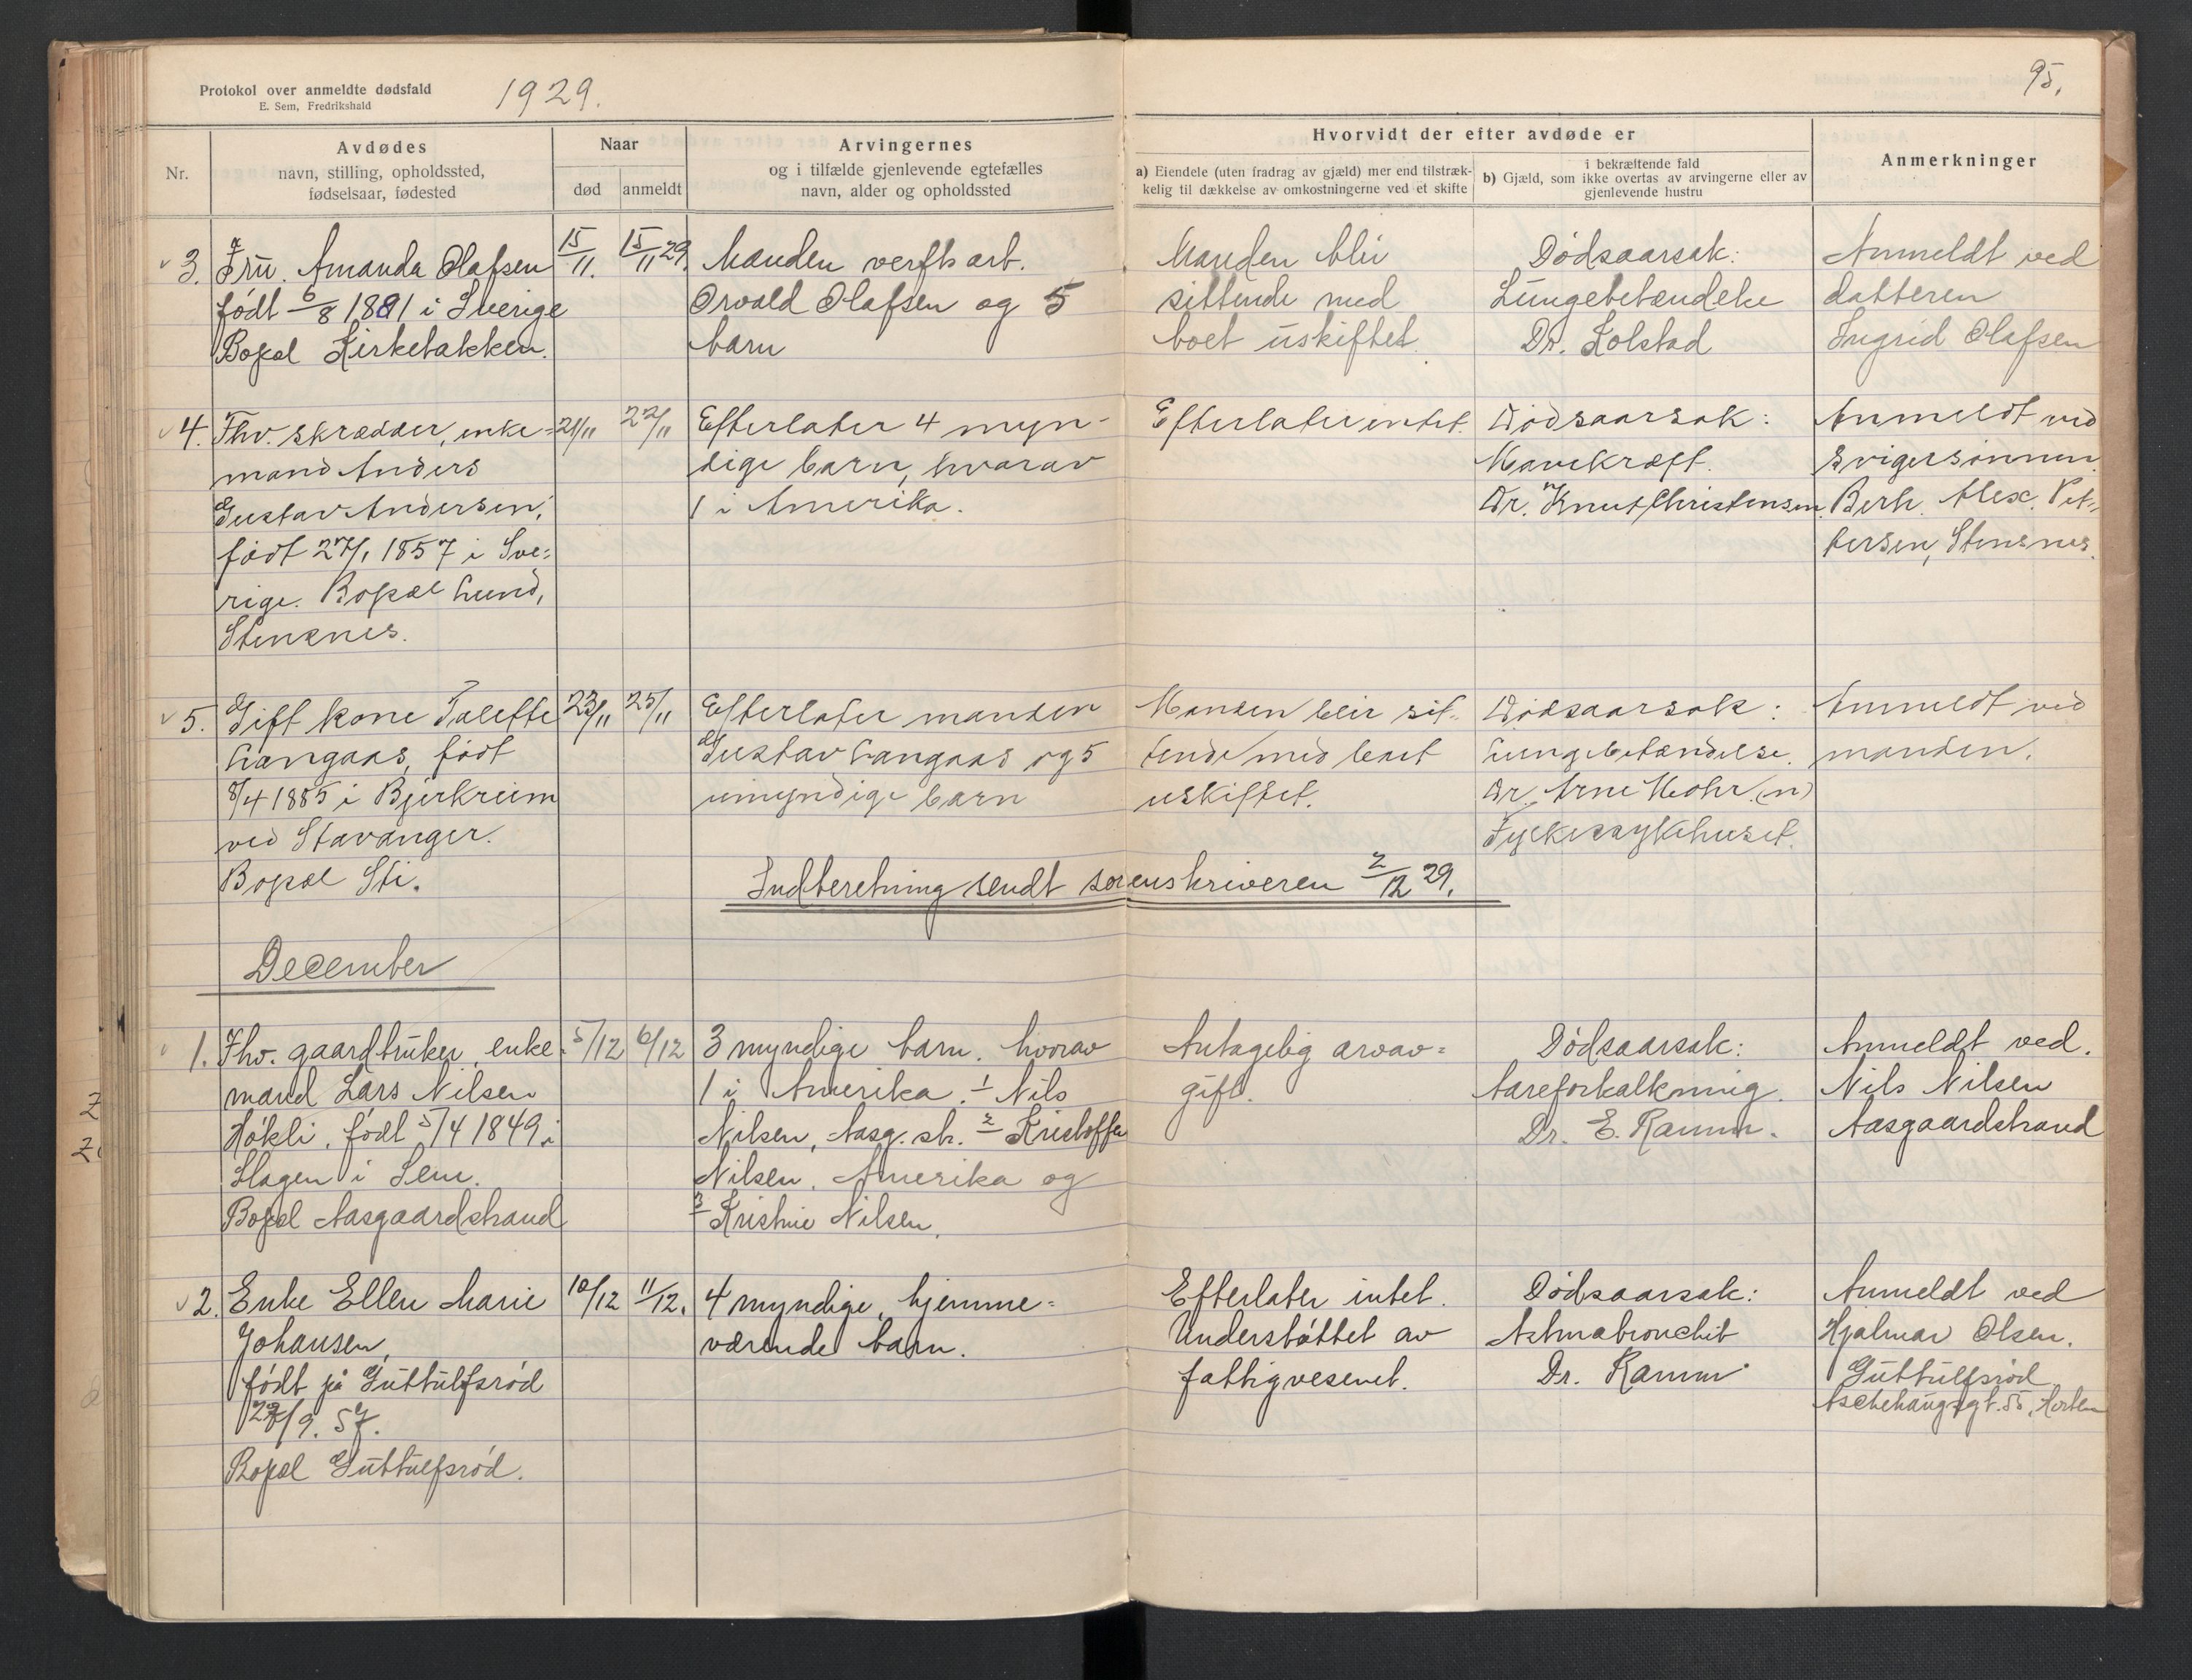 Protokol over anmeldte dødsfald
E. Sem, Fredrikshald
1929.
95.
Nr.
Avdødes
navn, stilling, opholdssted,
fødselsaar, fødested
Naar
død
anmeldt
Arvingernes
og i tilfælde gjenlevende egtefælles
navn, alder og opholdssted
Hvorvidt der efter avdøde er
a) Eiendele (uten fradrag av gjæld) mer end tilstræk-
kelig til dækkelse av omkostningerne ved et skifte
i bekræftende fald
b) Gjæld, som ikke overtas av arvingerne eller av
gjenlevende hustru
Anmerkninger
3. Fru. Amanda Olafsen
født 6/8 1881 i Sverige
Bopæl Kirkebakken.
15/11.
15/11 29.
Manden verftsarb.
Osvald Olafsen og 5
barn
Manden blir
sittende med
boet uskiftet.
Dødsaarsak:
Lungebetændelse
Dr. Kolstad
Anmeldt ved
datteren
Ingrid Olafsen
4. Fhv. skrædder, enke-
mand Anders
Gustav Andersen,
født 27/1 1857 i Sve-
rige. Bopæl Lund,
Stensnes.
21/11
22/11
Efterlater 4 myn-
dige barn, hvorav
1 i Amerika.
Efterlater intet.
Dødsaarsak:
Mavekræft.
Dr. Knut Christensen.
Anmeldt ved
svigersønnen
Berh. Alex. Pet-
tersen, Stensnes.
5. Gift kone Talette
Langaas, født
8/4 1885 i Bjerkreim
ved Stavanger.
Bopæl Sti.
23/11
25/11
Efterlater manden
Gustav Langaas og 5
umyndige barn
Manden blir sit-
tende med boet
uskiftet.
Dødsaarsak:
Lungebetændelse.
Dr. Arne Mohr (n)
Fylkessykehuset.
Anmeldt ved
manden.
Indberetning sendt sorenskriveren 2/12 29.
December
1. Fhv. gaardbruker, enke-
mand Lars Nilsen
Høkli, født 5/4 1849 i
Slagen i Sem.
Bopæl Aasgaardstrand
5/12
6/12
3 myndige barn. hvorav
1 i Amerika. 1 Nils
Nilsen, Aasg.str. 2 Kristoffer
Nilsen, Amerika og
3 Kristine Nilsen.
Antagelig arvav-
gift.
Dødsaarsak:
Aareforkalkning.
Dr. E. Ramm.
Anmeldt ved.
Nils Nilsen
Aasgaardstrand
2. Enke Ellen Marie
Johansen,
født på Guttulfsrød
29/9. 57.
Bopæl Guttulfsrød.
10/12
11/12.
4 myndige, hjemme-
værende barn.
Efterlater intet.
Understøttet av
fattigvesenet.
Dødsaarsak:
Astmabronchit
Dr. Ramm
Anmeldt ved
Hjalmar Olsen.
Guttulfsrød
Aschehaugsgt. 55, Horten